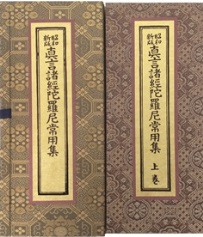 昭和新版
真言諸經陀羅尼常用集
昭和新版
真言諸經陀羅尼常用集 上巻